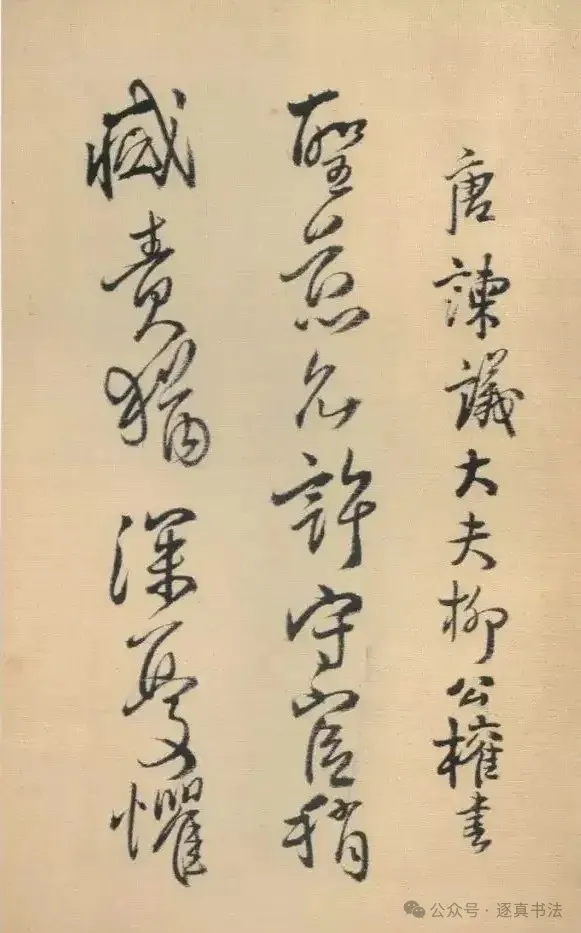 唐諫議大夫柳公權書
聖慈允許守官稍
臧責猶深憂懼
公众号·逐真书法